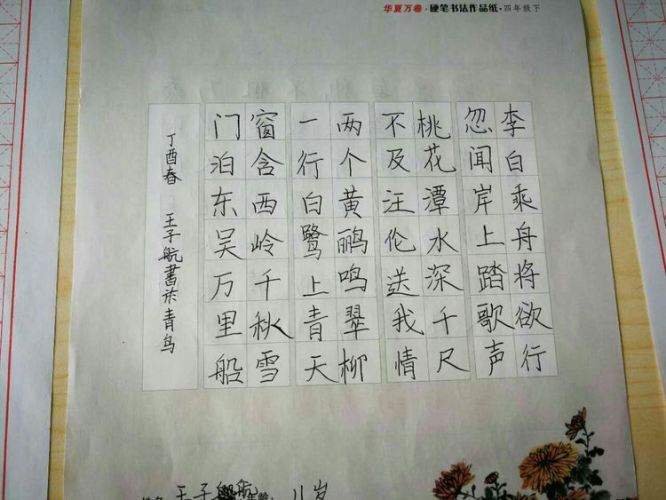 华夏万卷·硬笔书法作品纸·四年级下
李白乘舟将欲行
忽闻岸上踏歌声
桃花潭水深千尺
不及汪伦送我情
两个黄鹂鸣翠柳
一行白鹭上青天
窗含西岭千秋雪
门泊东吴万里船
丁酉春 王子航書於青鸟
王子航 11岁